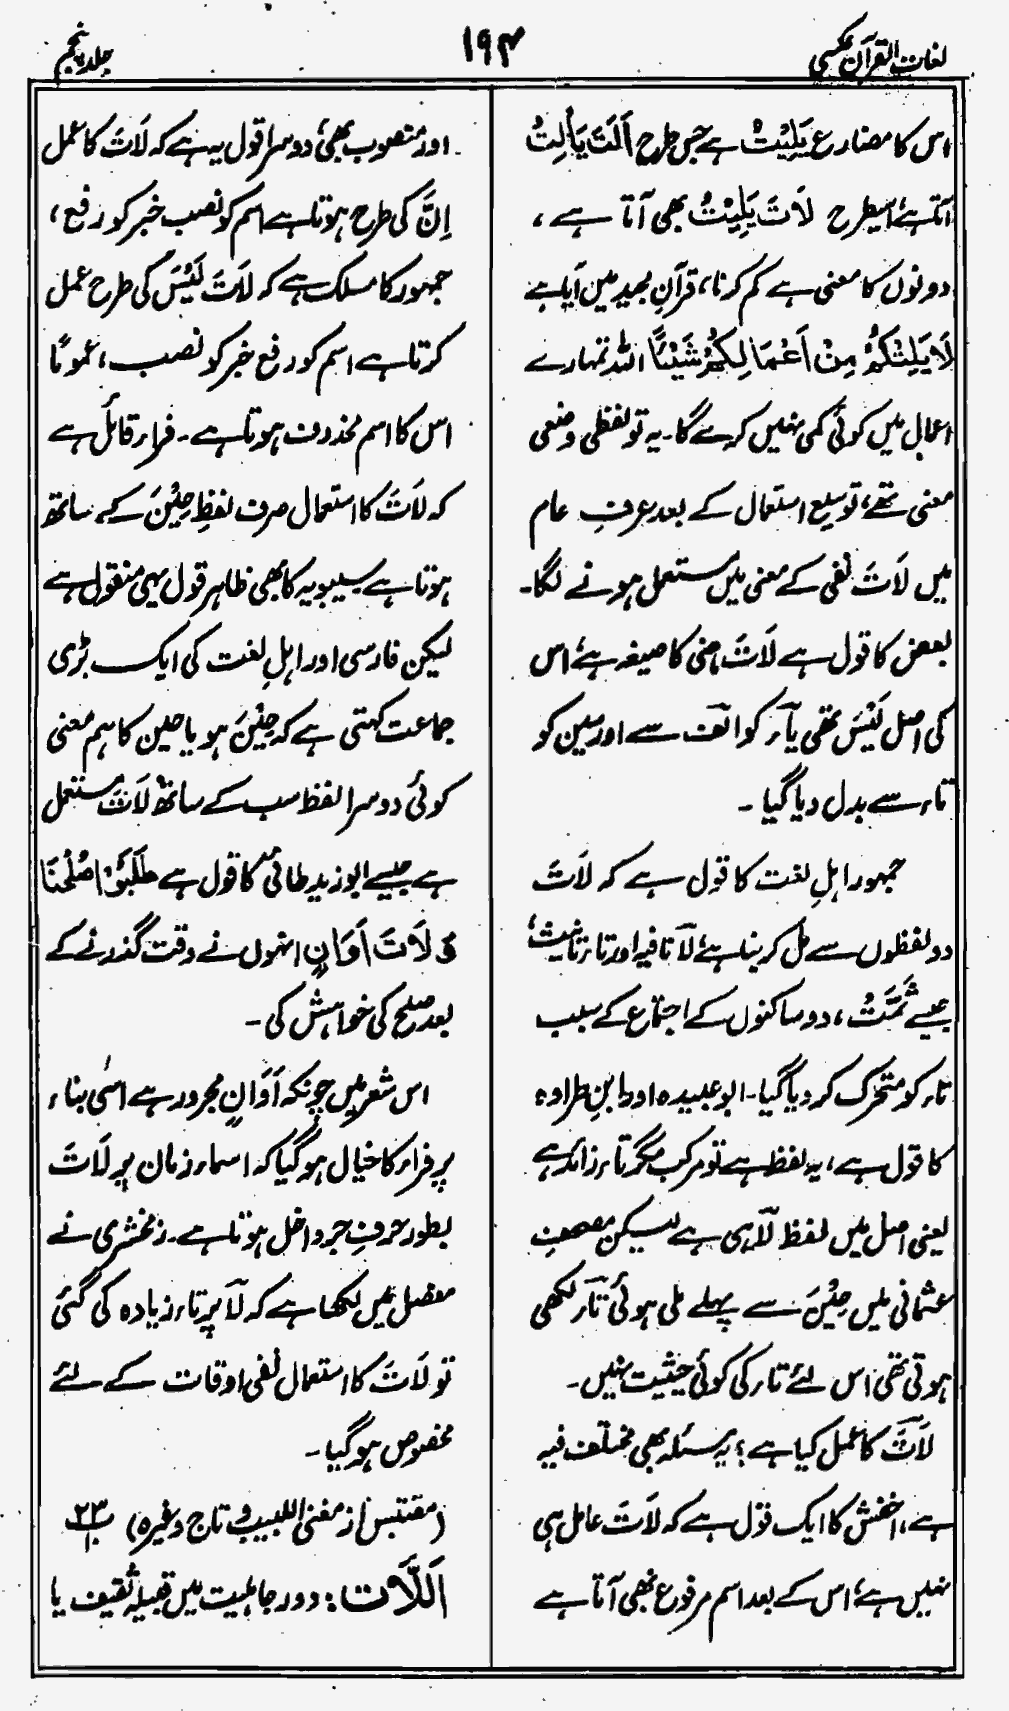 لغات القرآن عکسی
۱۹۴
جلد پنجم
اس کا مضارع یَلِیْتُ ہے جس طرح اَلَتَ یَأْلِتُ
آتا ہے، اسیطرح لَاتَ یَلِیْتُ بھی آتا ہے،
دونوں کا معنی ہے کم کرنا، قرآنِ مجید میں آیا ہے
لَا یَلِتْکُمْ مِنْ اَعْمَالِکُمْ شَیْئًا اللہ تمہارے
اعمال میں کوئی کمی نہیں کرے گا۔ یہ تو لفظی وضعی
معنی تھے، توسیع استعمال کے بعد عرفِ عام
میں لَاتَ نفی کے معنی میں مستعمل ہونے لگا۔
بعض کا قول ہے لَاتَ ماضی کا صیغہ ہے، اس
کی اصل لَیْسَ تھی یآر کو الف سے اور سین کو
تاء سے بدل دیا گیا۔
جمہور اہلِ لغت کا قول ہے کہ لَاتَ
دو لفظوں سے مل کر بنا ہے، لَا نافیہ اور تاء تانیث،
جیسے ثَمَّتُ، دو ساکنوں کے اجتماع کے سبب
تاء کو متحرک کر دیا گیا۔ ابو عبیدہ اور ابنِ طراوہ
کا قول ہے، یہ لفظ ہے تو مرکب مگر تاء زائد ہے
یعنی اصل میں لفظ لَا ہی ہے لیکن مصحفِ
عثمانی میں حِیْنَ سے پہلے ملی ہوئی تآر لکھی
ہوتی تھی اس لئے تار کی کوئی حیثیت نہیں۔
لَاتَ کا عمل کیا ہے؟ یہ مسئلہ بھی مختلف فیہ
ہے، اخفش کا ایک قول ہے کہ لَاتَ عامل ہی
نہیں ہے، اس کے بعد اسم مرفوع بھی آتا ہے
اور منصوب بھی، دوسرا قول یہ ہے کہ لَاتَ کا عمل
اِنَّ کی طرح ہوتا ہے اسم کو نصب خبر کو رفع،
جمہور کا مسلک ہے کہ لَاتَ لَیْسَ کی طرح عمل
کرتا ہے اسم کو رفع خبر کو نصب، عمومًا
اس کا اسم محذوف ہوتا ہے۔ فراء قائل ہے
کہ لَاتَ کا استعمال صرف لفظِ حِیْنَ کے ساتھ
ہوتا ہے سیبویہ کا بھی ظاہر قول یہی منقول ہے
لیکن فارسی اور اہلِ لغت کی ایک بڑی
جماعت کہتی ہے کہ حِیْنَ ہو یا حین کا ہم معنی
کوئی دوسرا لفظ سب کے ساتھ لَاتَ مستعمل
ہے جیسے ابو زبید طائی کا قول ہے طَلَبُوْا صُلْحَنَا
وَ لَاتَ اَوَانٍ انہوں نے وقت گذرنے کے
بعد صلح کی خواہش کی۔
اس شعر میں چونکہ اَوَانٍ مجرور ہے اسی بناء
پر فراء کا خیال ہو گیا کہ اسماء زمان پر لَاتَ
بطور حرفِ جر داخل ہوتا ہے۔ زمخشری نے
مفصل میں لکھا ہے کہ لَا پر تاء زیادہ کی گئی
تو لَاتَ کا استعمال نفی اوقات کے لئے
مخصوص ہو گیا۔
(مقتبس از مغنی اللبیب و تاج وغیرہ) پ۲۳
اَللَّات: دور جاہلیت میں قبیلۂ ثقیف یا